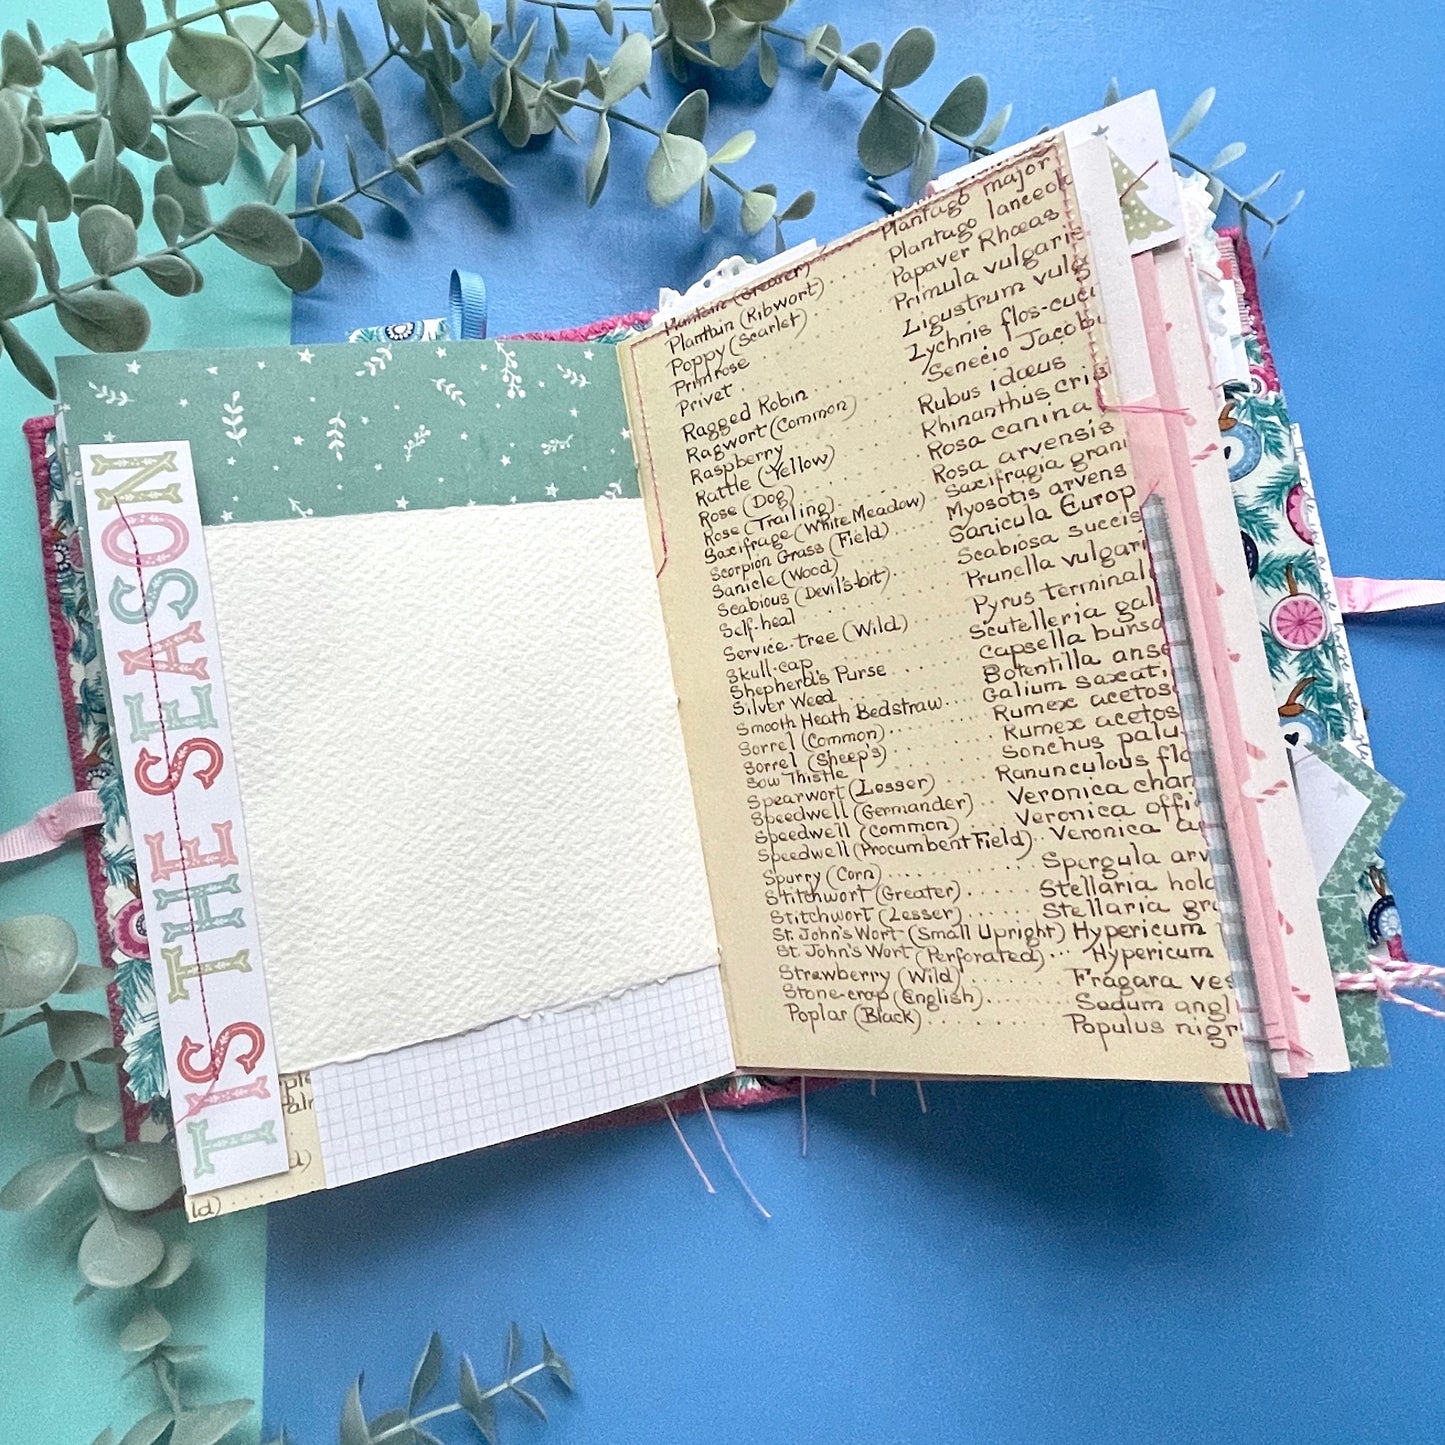 TIS THE SEASON
ld)
Plantago major
Plantain (Greater)
Plantain (Ribwort) . . . . Plantago lanceol
Poppy (Scarlet) . . . . Papaver Rhœas
Primrose . . . . Primula vulgaris
Privet . . . . Ligustrum vulg
Ragged Robin . . . . Lychnis flos-cuci
Ragwort (Common) . . . . Senecio Jacob
Raspberry . . . . Rubus idæus
Rattle (Yellow) . . . . Rhinanthus cris
Rose (Dog) . . . . Rosa canina
Rose (Trailing) . . . . Rosa arvensis
Saxifrage (White Meadow) Saxifragia gran
Scorpion Grass (Field) . . . . Myosotis arvens
Sanicle (Wood) . . . . Sanicula Europ
Scabious (Devil's-bit) . . . . Scabiosa succis
Self-heal . . . . Prunella vulgari
Service-tree (Wild) . . . . Pyrus terminal
Skull-cap . . . . Scutelleria gal
Shepherd's Purse . . . . Capsella bursa
Silver Weed . . . . Potentilla anse
Smooth Heath Bedstraw . . . . Galium saxati
Sorrel (Common) . . . . Rumex acetos
Sorrel (Sheep's) . . . . Rumex acetos
Sow Thistle . . . . Sonchus palu
Spearwort (Lesser) . . . . Ranunculous fla
Speedwell (Germander) . . Veronica cham
Speedwell (Common) . . . . Veronica offi
Speedwell (Procumbent Field) . . Veronica a
Spurry (Corn) . . . . Spergula arv
Stitchwort (Greater) . . . . Stellaria holo
Stitchwort (Lesser) . . . . Stellaria gr
St. John's Wort (Small Upright) Hypericum
St. John's Wort (Perforated) . . . Hypericum
Strawberry (Wild) . . . . Fragara ves
Stone-crop (English) . . . . Sedum angl
Poplar (Black) . . . . Populus nigr